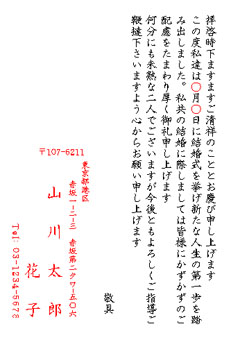 拝啓時下ますますご清祥のこととお慶び申し上げます
この度私達は〇月〇日に結婚式を挙げ新たな人生の第一歩を踏
み出しました。私共の結婚に際しましては皆様にかずかずのご
配慮をたまわり厚く御礼申し上げます
何分にも未熟な二人でございますが今後ともよろしくご指導ご
鞭撻下さいますよう心からお願い申し上げます
敬具
〒107-6211
東京都港区
赤坂一-二-三 赤坂第二クワ-五〇六
山川太郎
花子
Tel. 03-1234-5678